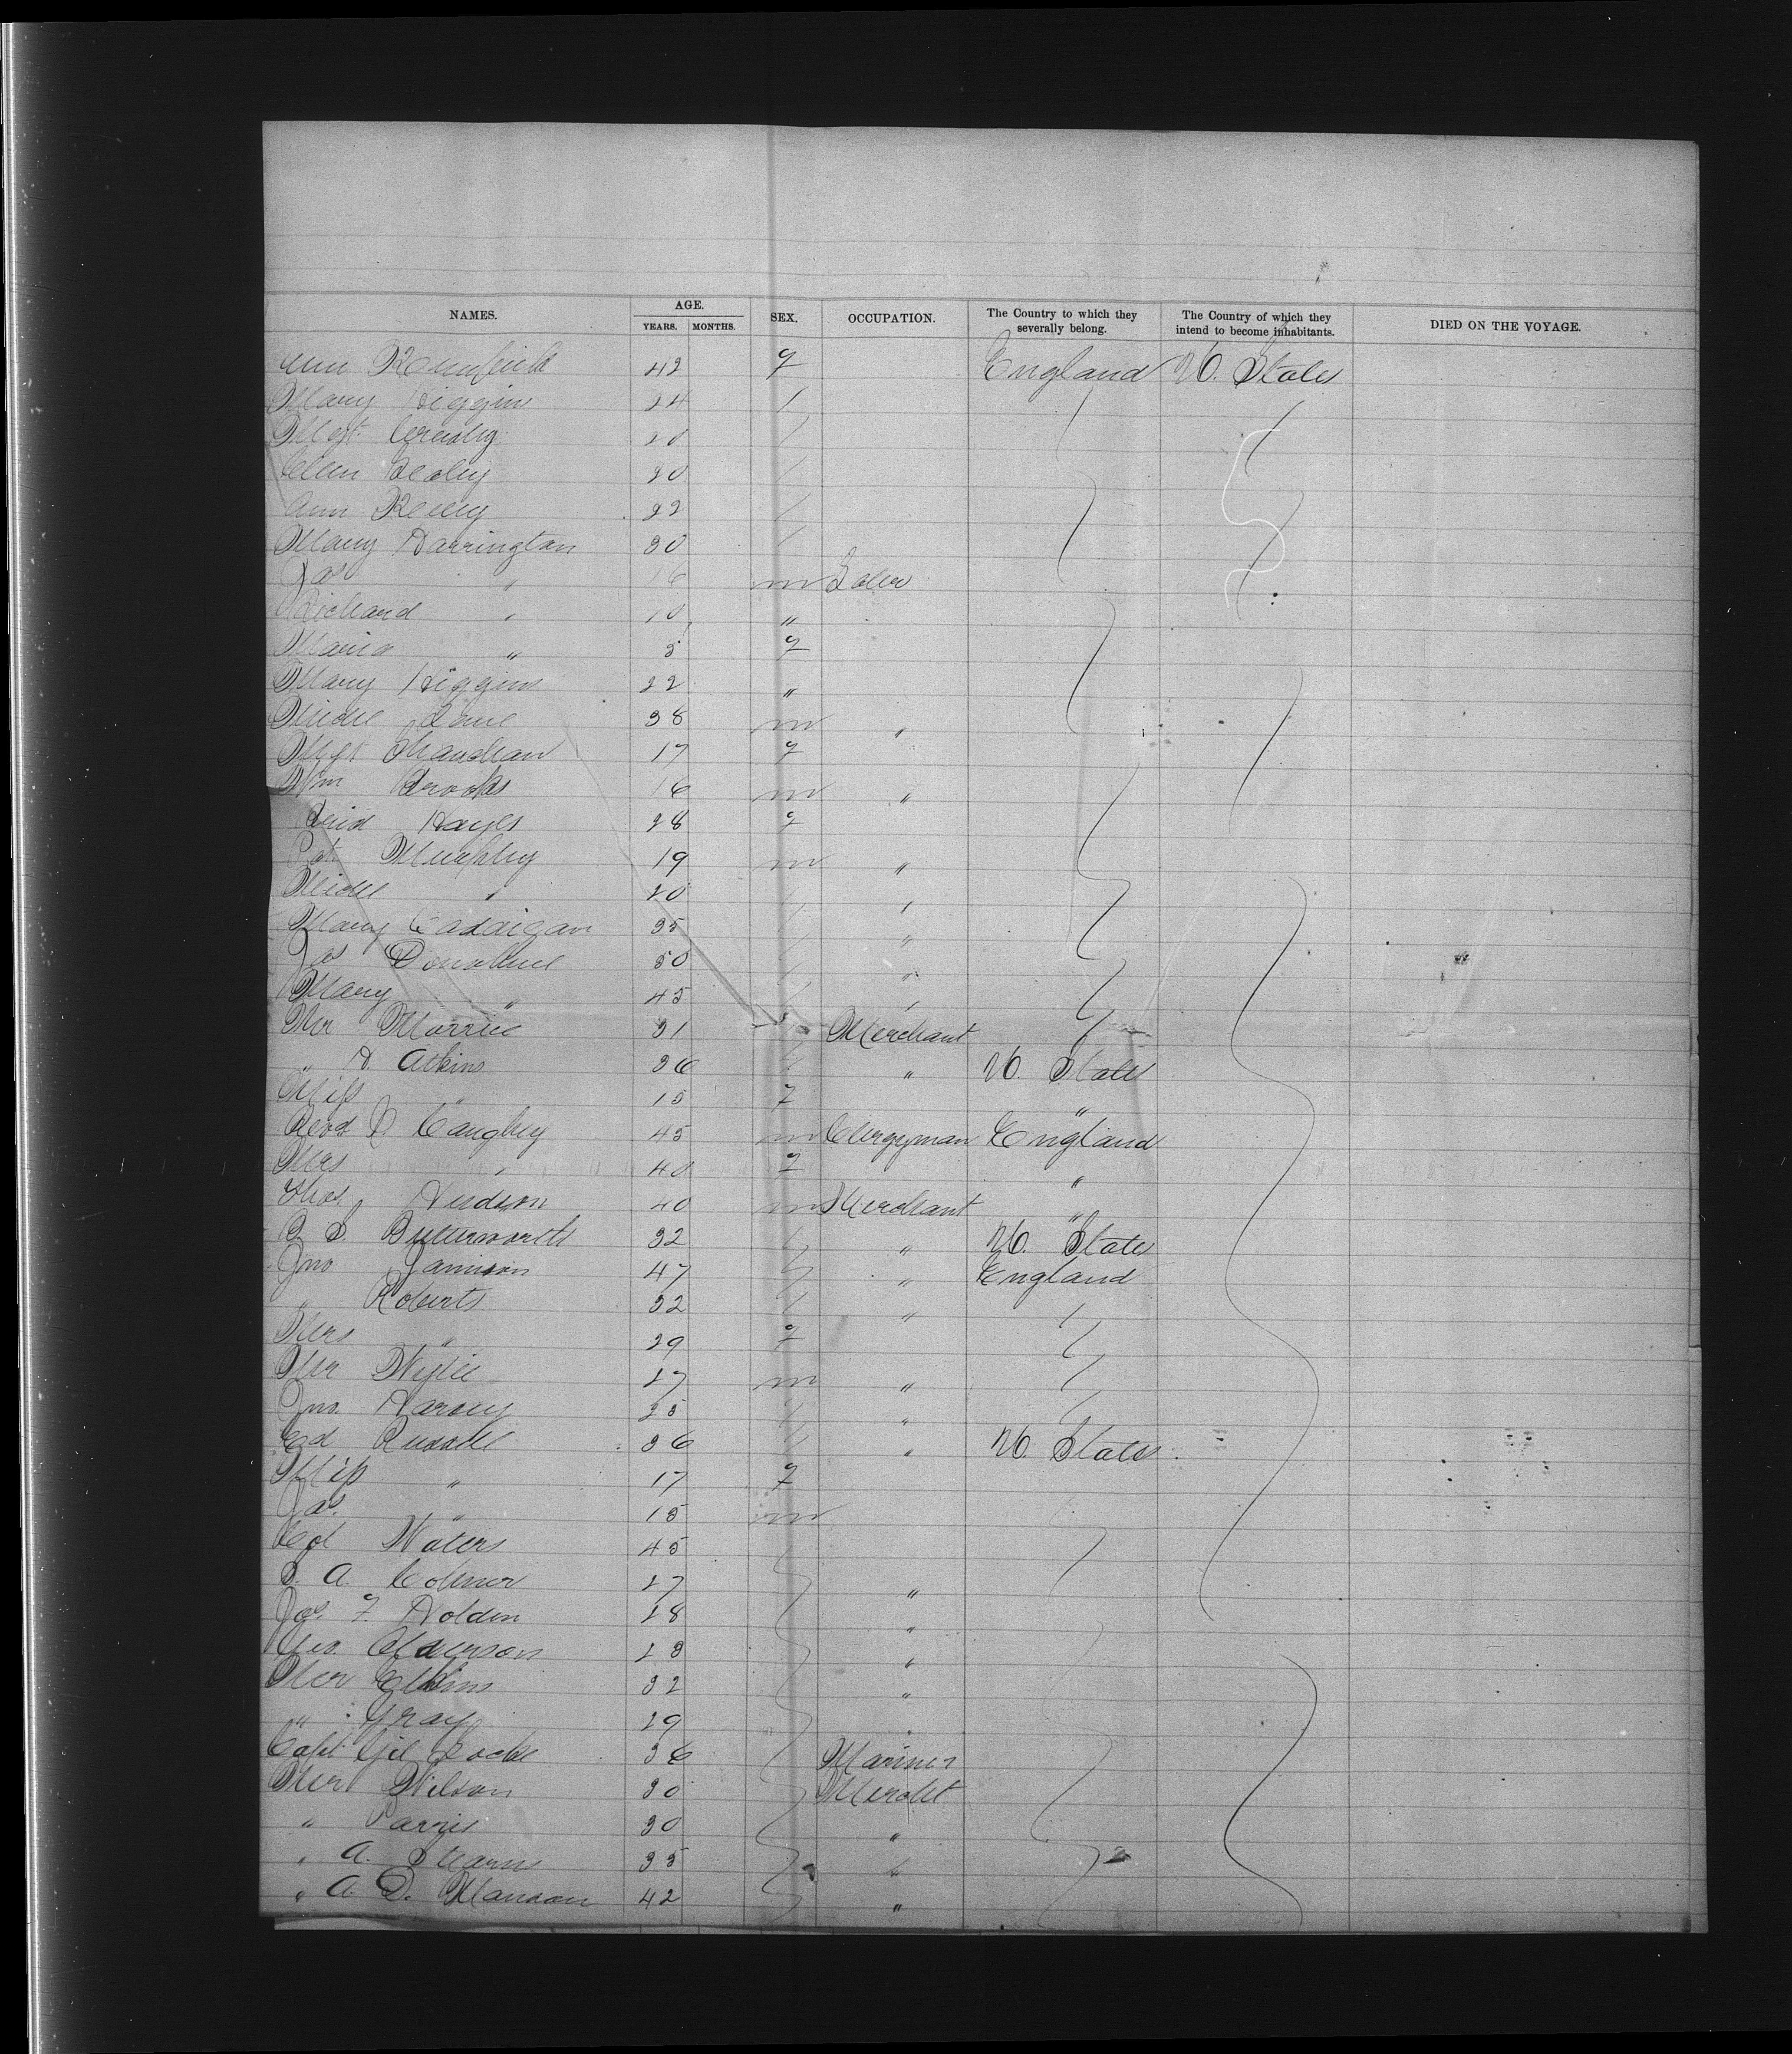 NAMES. AGE. SEX. OCCUPATION. The Country to which they severally belong. The Country of which they intend to become inhabitants. DIED ON THE VOYAGE.
YEARS. MONTHS.
Ann 42 f England U. States
Mary Higgins 24
Mgt. 20
Ellen Healey 20
Ann Kelly 22
Mary Harrington 30
Jas " 16 m Labr
Richard " 10 "
Maria " 5 f
Mary Higgins 22 "
Michl Lane 38 m "
Mgt 17 f
Wm Brooks 16 m "
Hayes 28 f
Pat Murphy 19 m "
Michl " 20 "
Mary Caddigan 35 "
Jas Donohue 50 "
Mary " 45 "
Mr Morris 31 Merchant
" H. Atkins 36 " U. States
Miss " 15 f "
Revd Caughey 45 m Clergyman England
Mrs " 40 f "
Thos. Hudson 40 m Merchant "
B. S. Butterworth 32 " U. States
Jno Jamison 47 " England
" Roberts 32 "
Mrs " 29 f
Mr Wylie 27 m "
Jno. Harvey 25 "
Ed Russell 36 " U. States
Miss " 17 f
Jas. " 15 m
Col Waters 45
S. A. 27 "
Jas. F. Holden 28 "
Geo. Alderson 23 "
Mr Elkins 32 "
" Gray 29 "
Capt Locke 36 Mariner
Mr Wilson 30 Mercht
" Parris 30 "
" A. Stearn 35 "
" A. D. Manson 42 "